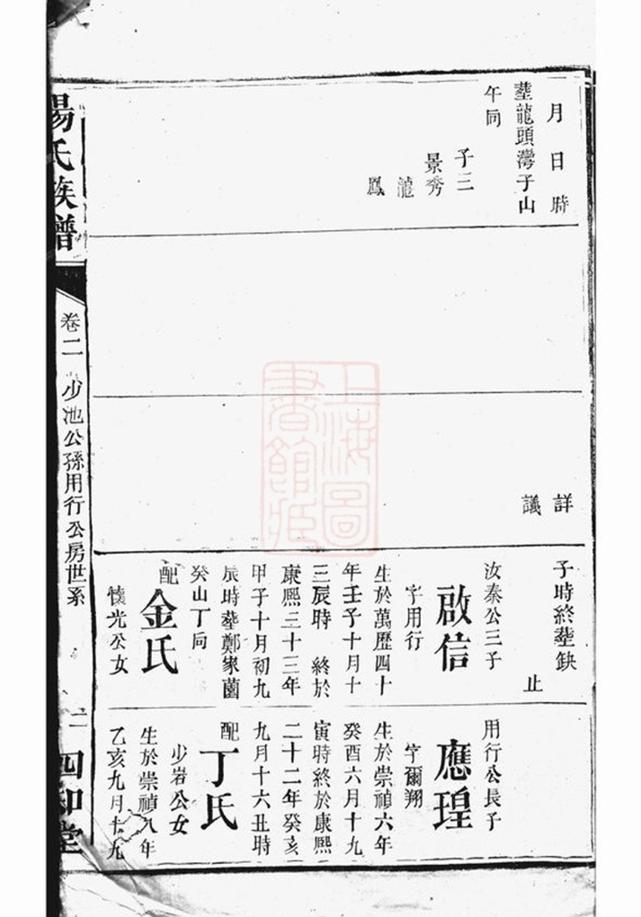 月日時
塟龍頭灣子山
午同
子三
景秀
瀧
鳳
詳
議
子時終塟缺
止
汝秦公三子
啟信
字用行
生於萬歷四十
年壬子十月十
三辰時 終於
康熙三十三年
甲子十月初九
辰時塟鄭家菌
癸山丁向
配
金氏
懷光公女
用行公長子
應瑝
字爾翔
生於崇禎六年
癸酉六月十九
寅時終於康熙
二十二年癸亥
九月十六丑時
配
丁氏
少岩公女
生於崇禎八年
乙亥九月十九
楊氏族譜
卷二
少池公孫用行公房世系
二
四知堂
上海圖書館藏